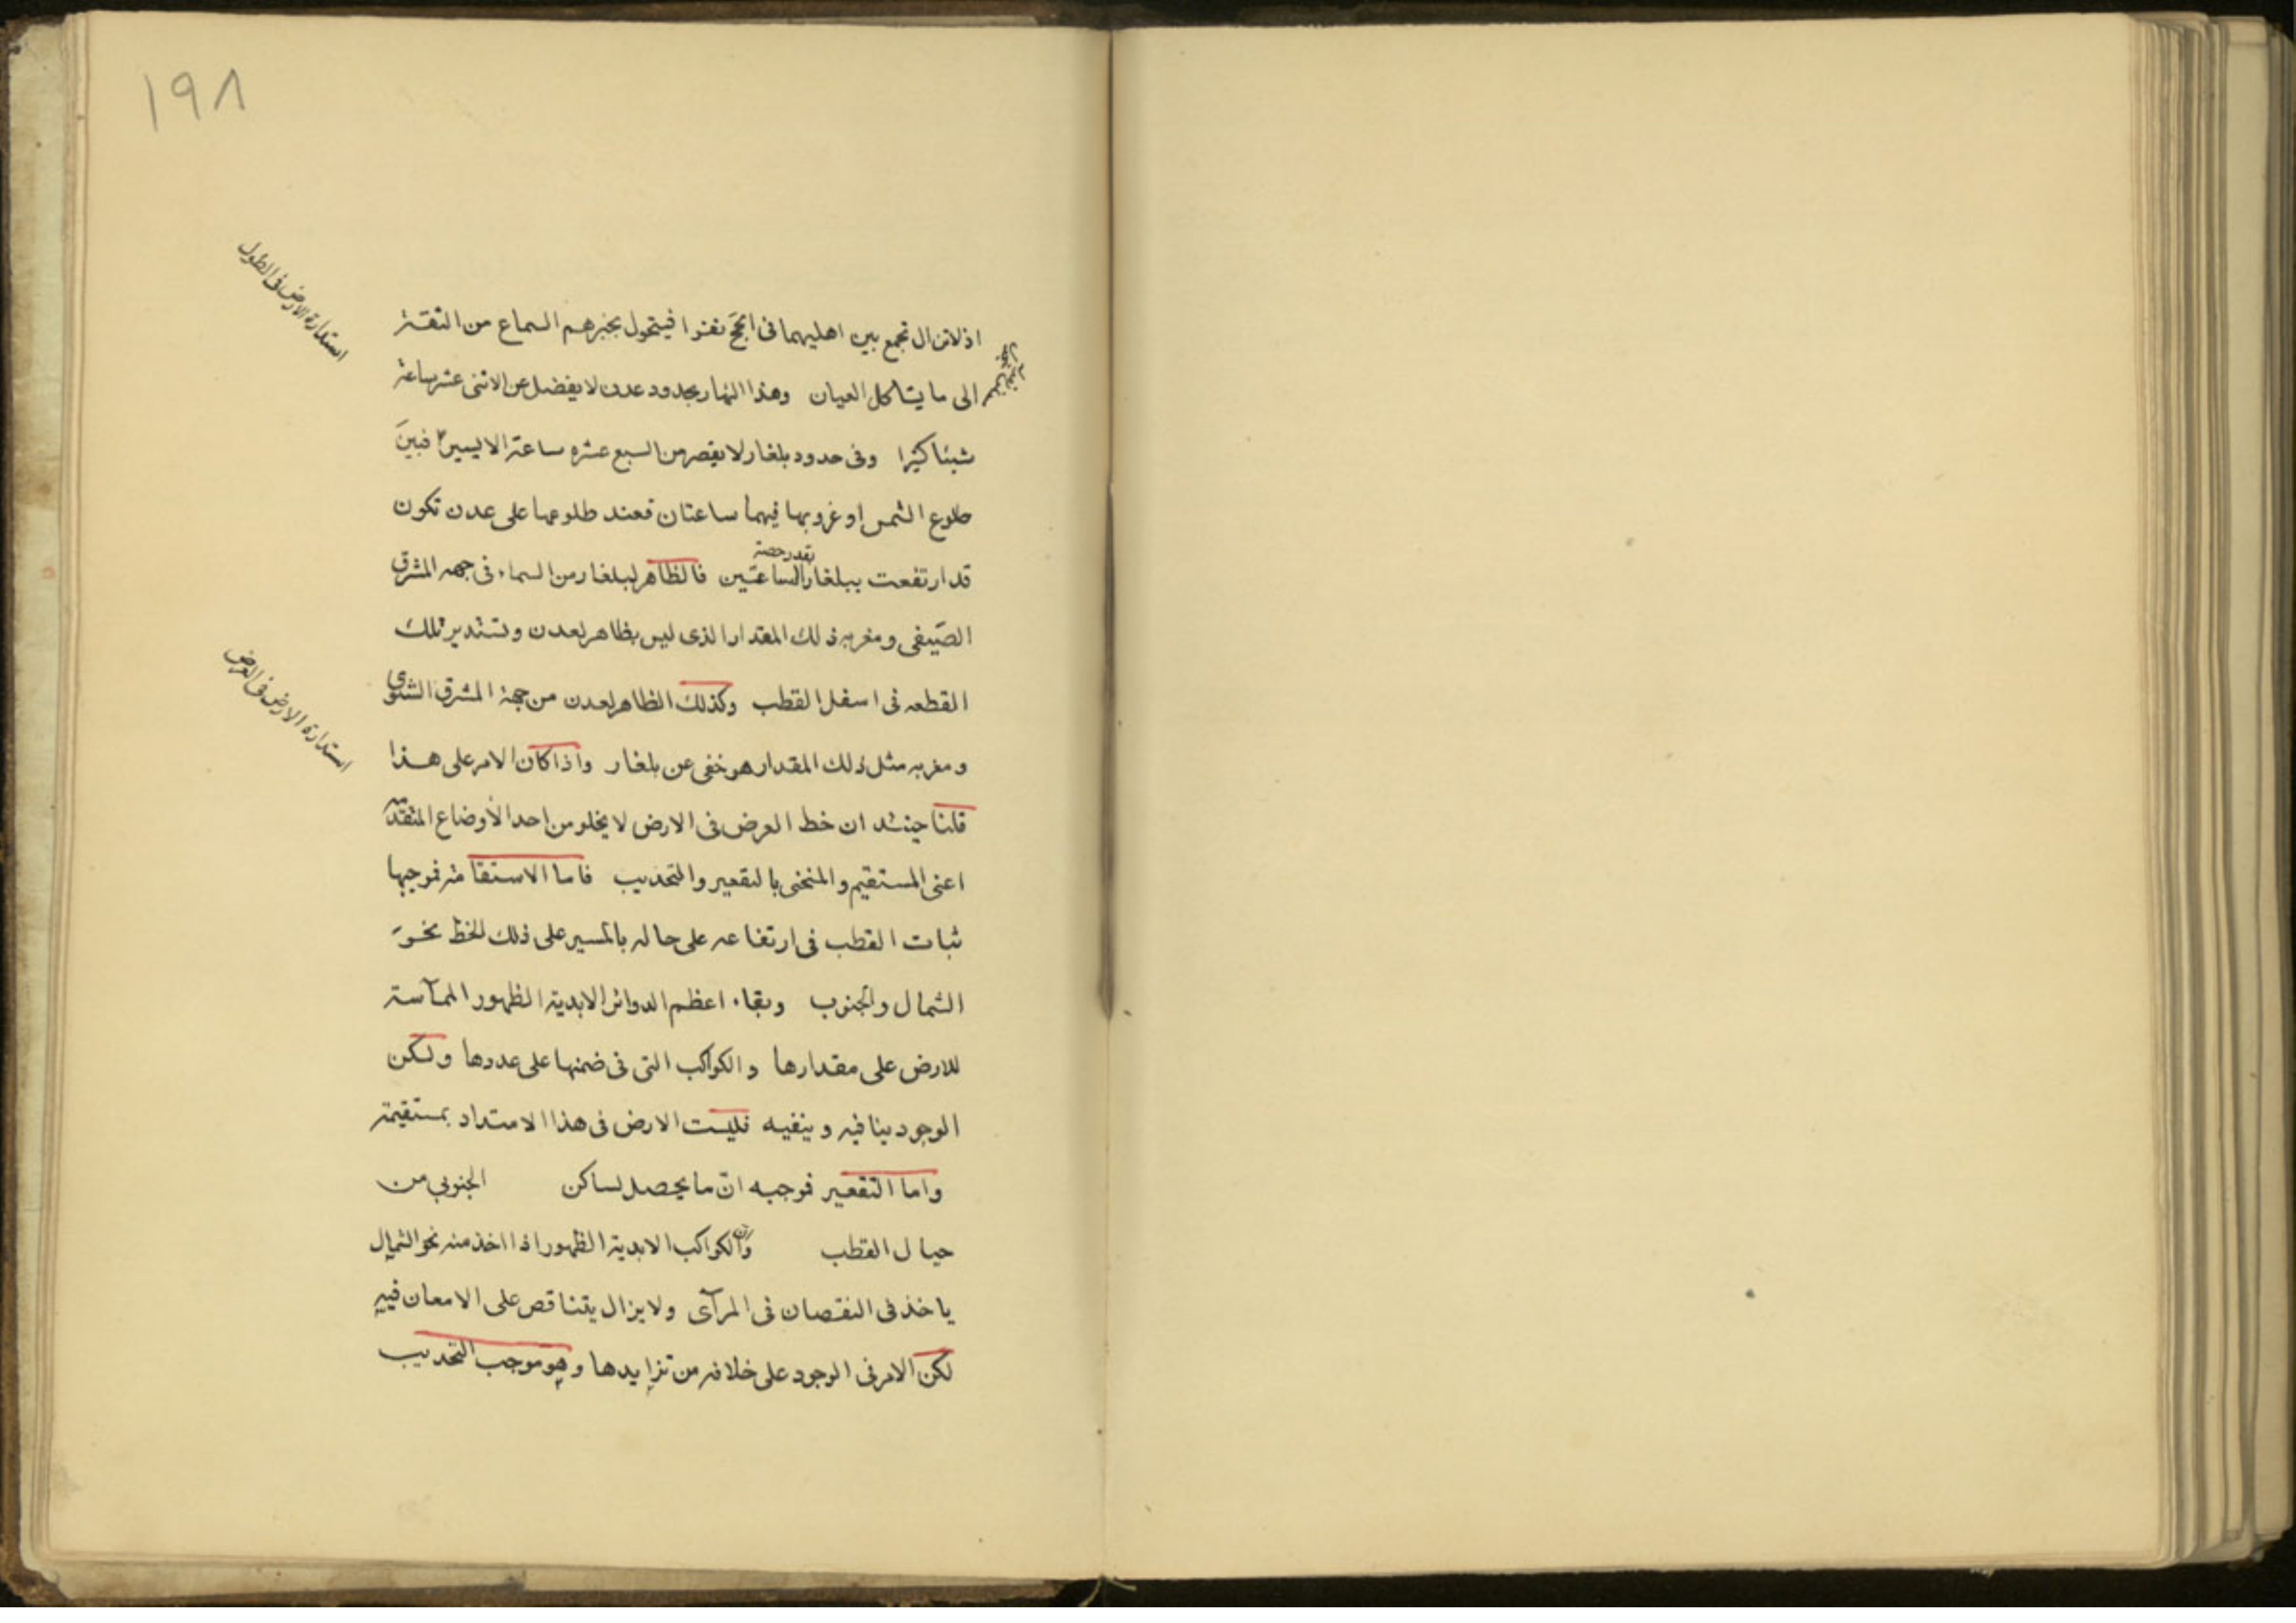 ١٩٨
استدارة الارض فى الطول
اذ لا تزال تجمع بين اهليهما فى الحج نفرا فيتحول بخبرهم السماع من
الى ما يشاكل العيان وهذا النهار بحدود عدن لا يفضل عن الاثنى عشر ساعة
شيئا كثيرا وفى حدود بلغار لا يقصر من السبع عشره ساعة الا يسيرا فبين
طلوع الشمس او غروبها فيهما ساعتان فعند طلوعها على عدن تكون
بقدر حصة
قد ارتفعت ببلغار الساعتين فالظاهر لبلغار من السماء فى جهه المشرق
الصيفى ومغربه ذلك المقدار الذى ليس بظاهر لعدن وتستدير تلك
استدارة الارض فى العرض
القطعه فى اسفل القطب وكذلك الظاهر لعدن من جهة المشرق الشتوى
ومغربه مثل ذلك المقدار هو خفى عن بلغار واذا كان الامر على هذا
قلنا حينئذ ان خط العرض فى الارض لا يخلو من احد الأوضاع المتقدمه
اعنى المستقيم والمنحنى بالتقعير والتحديب فاما الاستقامة فموجبها
ثبات القطب فى ارتفاعه على حاله بالمسير على ذلك الخط نحو
الشمال والجنوب وبقاء اعظم الدوائر الابدية الظهور المماسة
للارض على مقدارها والكواكب التى فى ضمنها على عددها ولكن
الوجود ينافيه وينفيه فليست الارض فى هذا الامتداد بمستقيمة
واما التقعير فوجبه ان ما يحصل لساكن الجنوبي من
حيال القطب وان الكواكب الابدية الظهور اذا اخذ منه نحو الشمال
ياخذ فى النقصان فى المرآى ولا يزال يتناقص على الامعان فيه
لكن الامر فى الوجود على خلافه من تزايدها وهو موجب التحديب